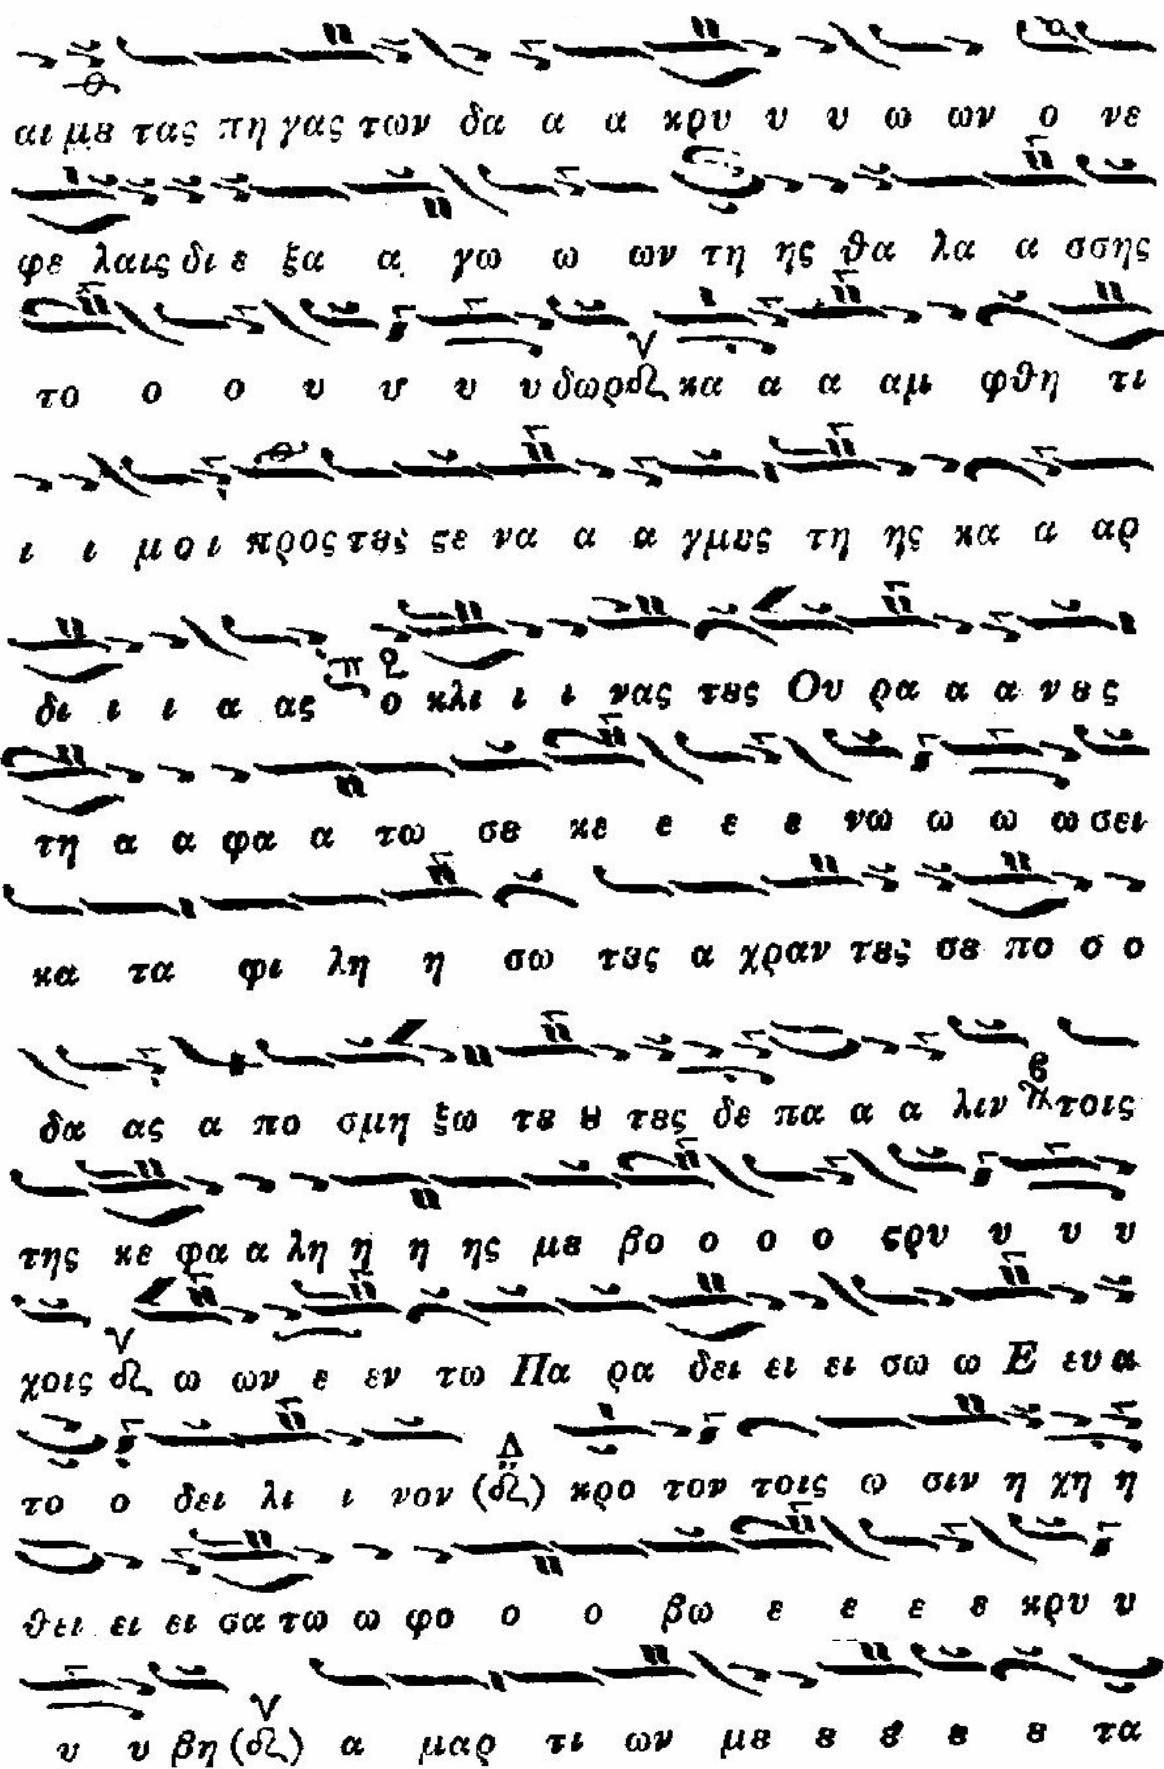 αι μȣ τας πη γας των δα α α κρυ υ υ ω ων ο νε
φε λαις δι ε ξα α γω ω ων τη ης θα λα α σσης
το ο ο υ υ υ υ δωρ κα α α αμ φθη τι
ι ι μοι προς τȣς ϛε να α α γμȣς τη ης κα α αρ
δι ι ι α ας ο κλι ι ι νας τȣς Ου ρα α α νȣς
τη α α φα α τω σȣ κε ε ε ε νω ω ω ω σει
κα τα φι λη η σω τȣς α χραν τȣς σȣ πο σ ο
δα ας α πο σμη ξω τȣ ȣ τȣς δε πα α α λιν τοις
της κε φα α λη η η ης μȣ βο ο ο ο ϛρυ υ υ υ
χοις ω ων ε εν τω Πα ρα δει ει ει σω ω Ε ευ α
το ο δει λι ι νον κρο τον τοις ω σιν η χη η
θει ει ει σα τω ω φο ο ο βω ε ε ε ε κρυ υ
υ υ βη α μαρ τι ων μȣ ȣ ȣ ȣ ȣ τα